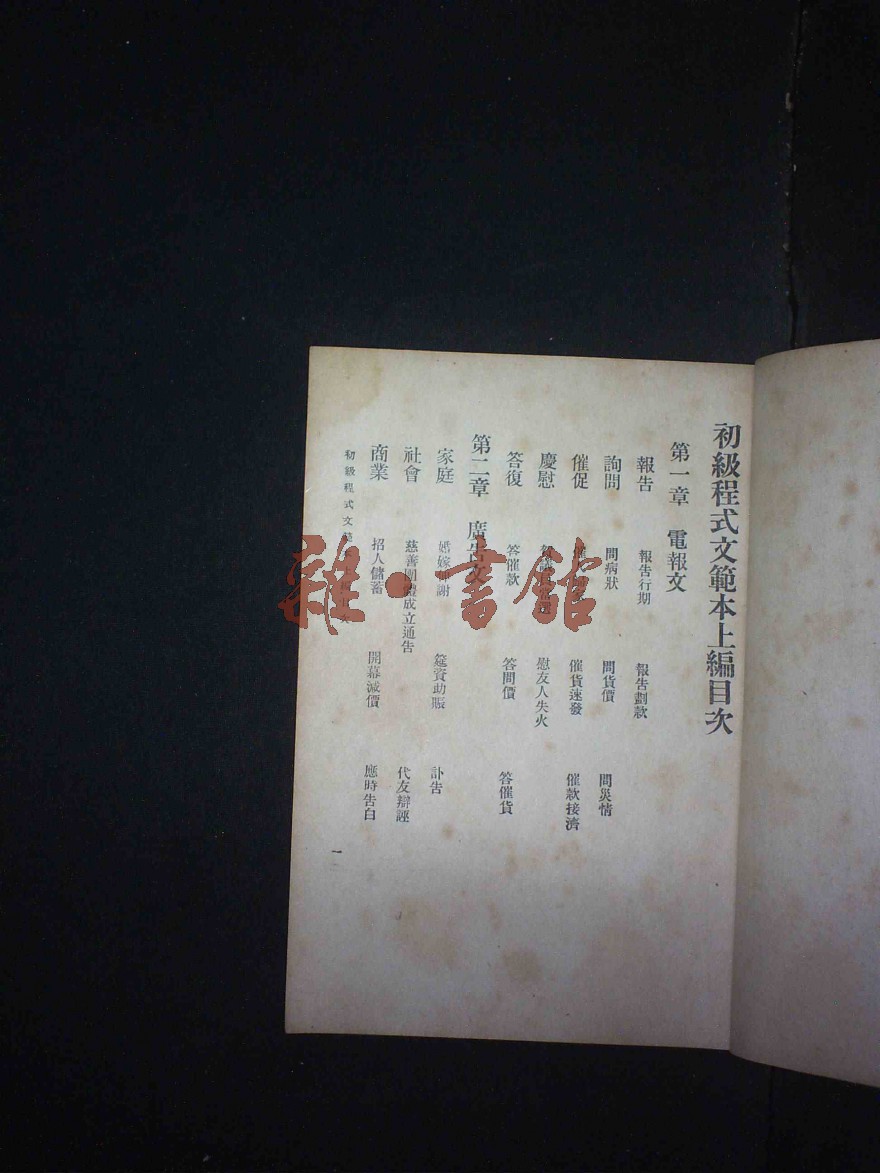 初級程式文範本上編目次
第一章 電報文
報告 報告行期 報告劃款
詢問 問病狀 問貨價 問災情
催促 催貨速發 催款接濟
慶慰 慰友人失火
答復 答催款 答問價 答催貨
第二章 廣告文
家庭 婚嫁 謝 筵資助賑 訃告
社會 慈善團體成立通告 代友辯誣
商業 招人儲蓄 開幕減價 應時告白
初級程式文
一
雜·書館